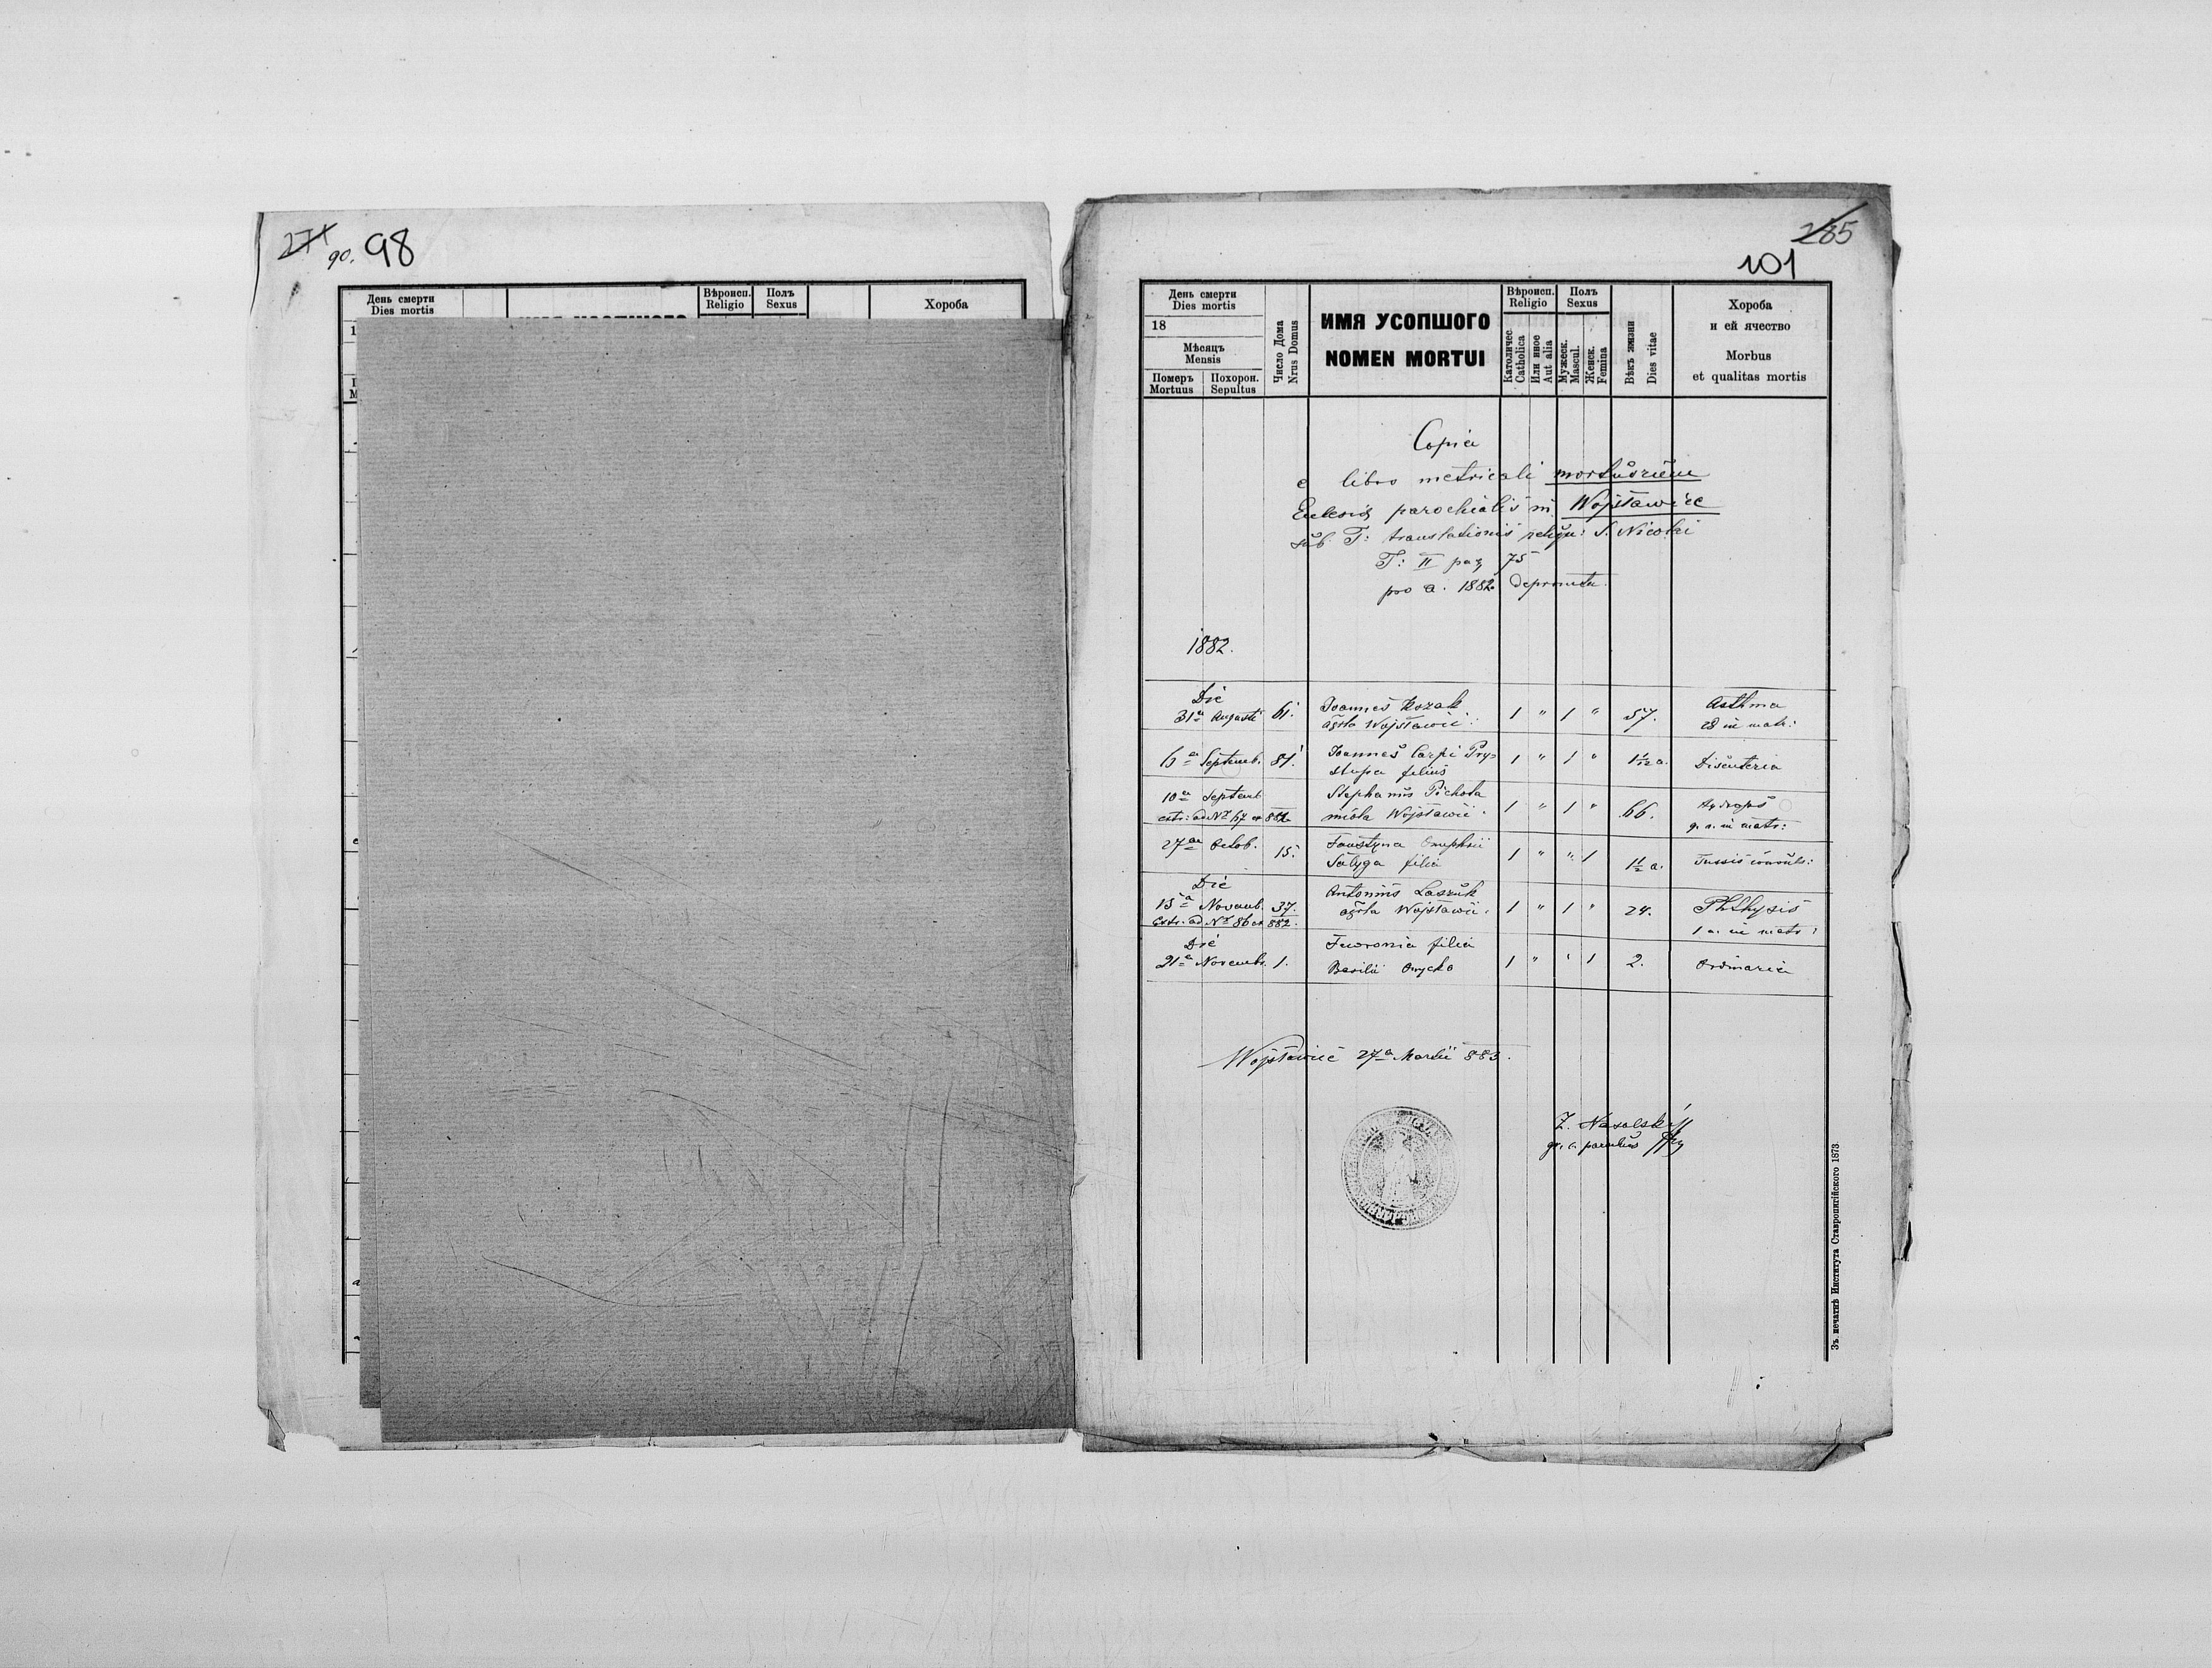 98
90.
День смерти
Dies mortis
Вѣроисп.
Religio
Полъ
Sexus
Хороба
285
101
День смерти
Dies mortis
18
Мѣсяцъ
Mensis
Померъ
Mortuus
Похорон.
Sepultus
Число Дома
Nrus Domus
ИМЯ УСОПШОГО
NOMEN MORTUI
Вѣроисп.
Religio
Католичес
Catholica
Или иное
Aut alia
Полъ
Sexus
Мужеск.
Mascul.
Женск.
Femina
Вѣкъ жизни
Dies vitae
Хороба
и ей ячество
Morbus
et qualitas mortis
Copia
e libro metricali mortuorum
Eclesiæ parochialis in Wojsławice
sub T: translationis reliqu: S. Nicolai
T: II pag 75
pro a. 1882 deprompta.
1882.
Die
31a Augusti 61. Joannes Kozak 1 " 1 " 57. Asthma
agrla Wojsławic. 28 in matr:
6a Septemb. 81. Joannes Carpi Pry= 1 " 1 " 1 1/12 a. Disenteria
stupa filius
10a Septemb Stephanus Pichota 1 " 1 " 66. Hydrops
extr: ad No 67 ex 882. Wojsławic. g. a. in matr:
27ae Octob. 15. Faustyna Onuphrii 1 " " 1 1 1/2 a. Tussis convuls:
filia
Die
15a Novemb. 37. Antonius Laszuk 1 " 1 " 24. Phthysis
Extr: ad No 86 ex 882. agrla Wojsławic. 1 a. in matr:
Die
21a Novemb. 1. Fewronia filia 1 " " 1 2. Ordinaria
Basilii Onyszko
Wojsławice 27a Martii 883.
Z. Nasalski
gr. c. parochus
Зъ печатнѣ Института Ставропигійского 1873.